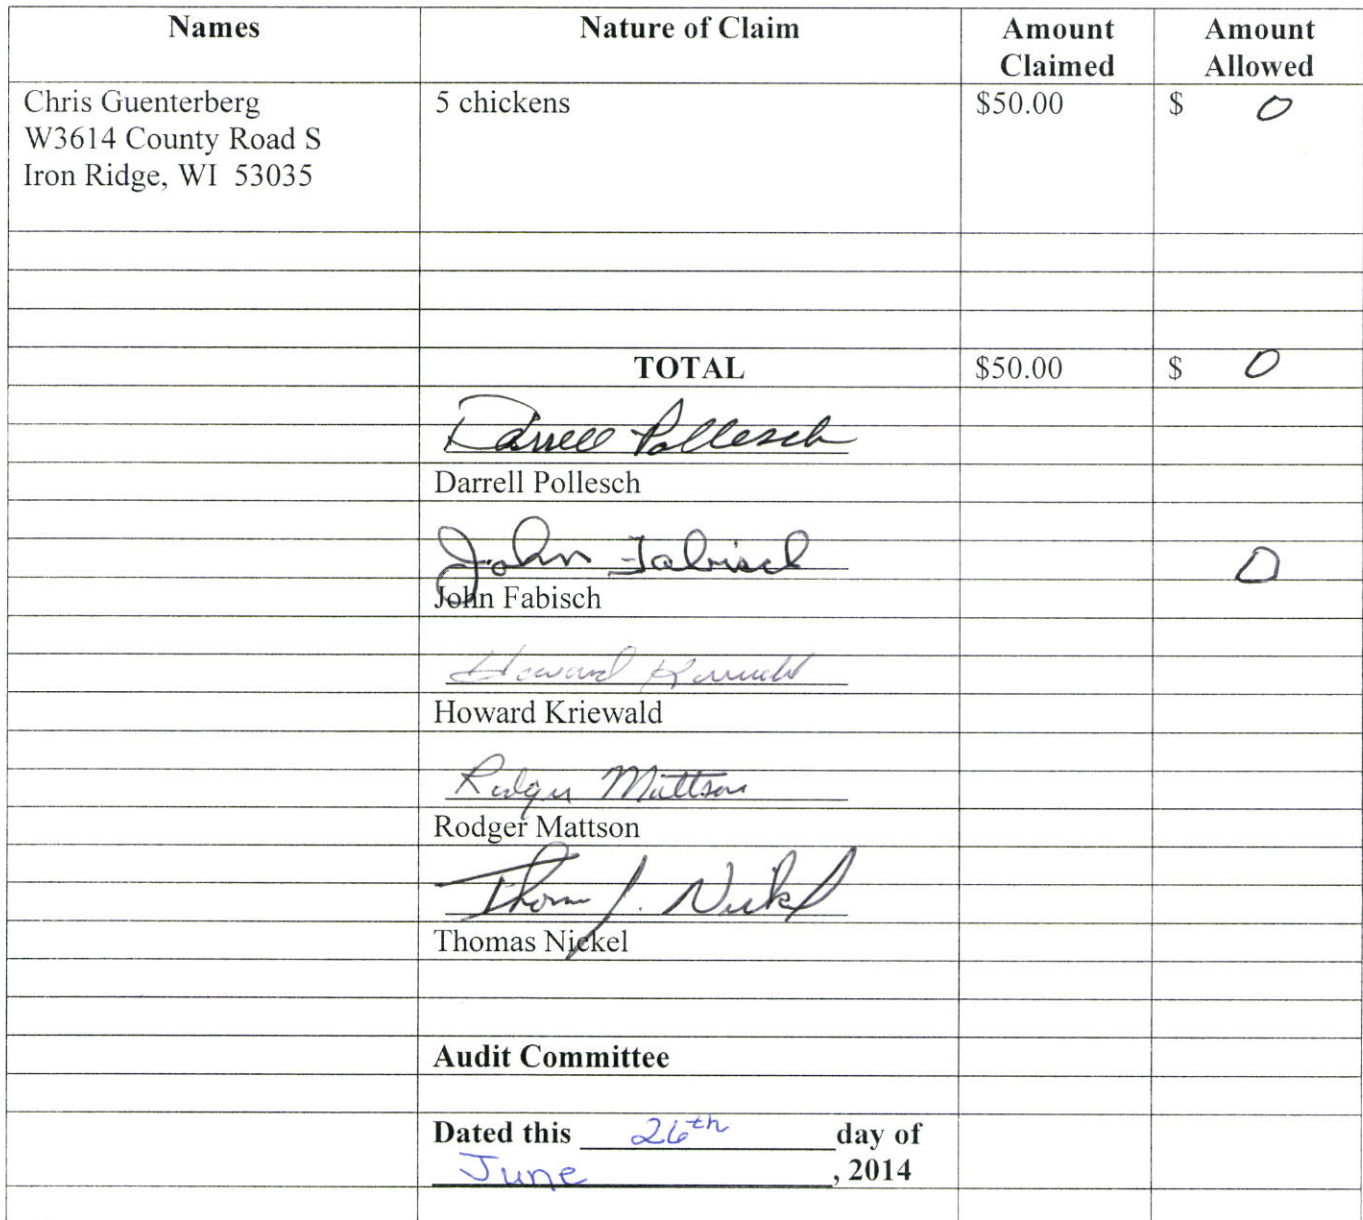 Names Nature of Claim Amount Claimed Amount Allowed
Chris Guenterberg 5 chickens $50.00 $ 0
W3614 County Road S
Iron Ridge, WI 53035
TOTAL $50.00 $ 0
Darrell Pollesch
Darrell Pollesch
John Fabisch 0
John Fabisch
Howard Kriewald
Howard Kriewald
Rodger Mattson
Rodger Mattson
Thom J. Nickel
Thomas Nickel
Audit Committee
Dated this 26th day of
June, 2014